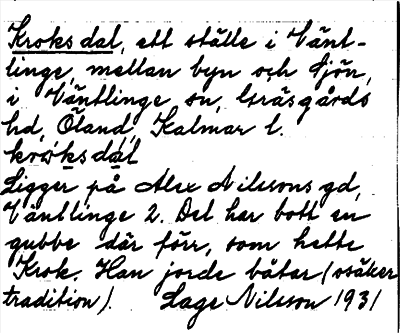 Kroksdal, ett ställe i Vänt-
linge, mellan byn och sjön,
i Väntlinge sn, Gräsgårds
hd, Öland, Kalmar l.
krὼksdàl
Ligger på Alex Nilssons gd,
Väntlinge 2. Det har bott en
gubbe där förr, som hette
Krok. Han jorde båtar (osäker
tradition). Lage Nilsson 1931